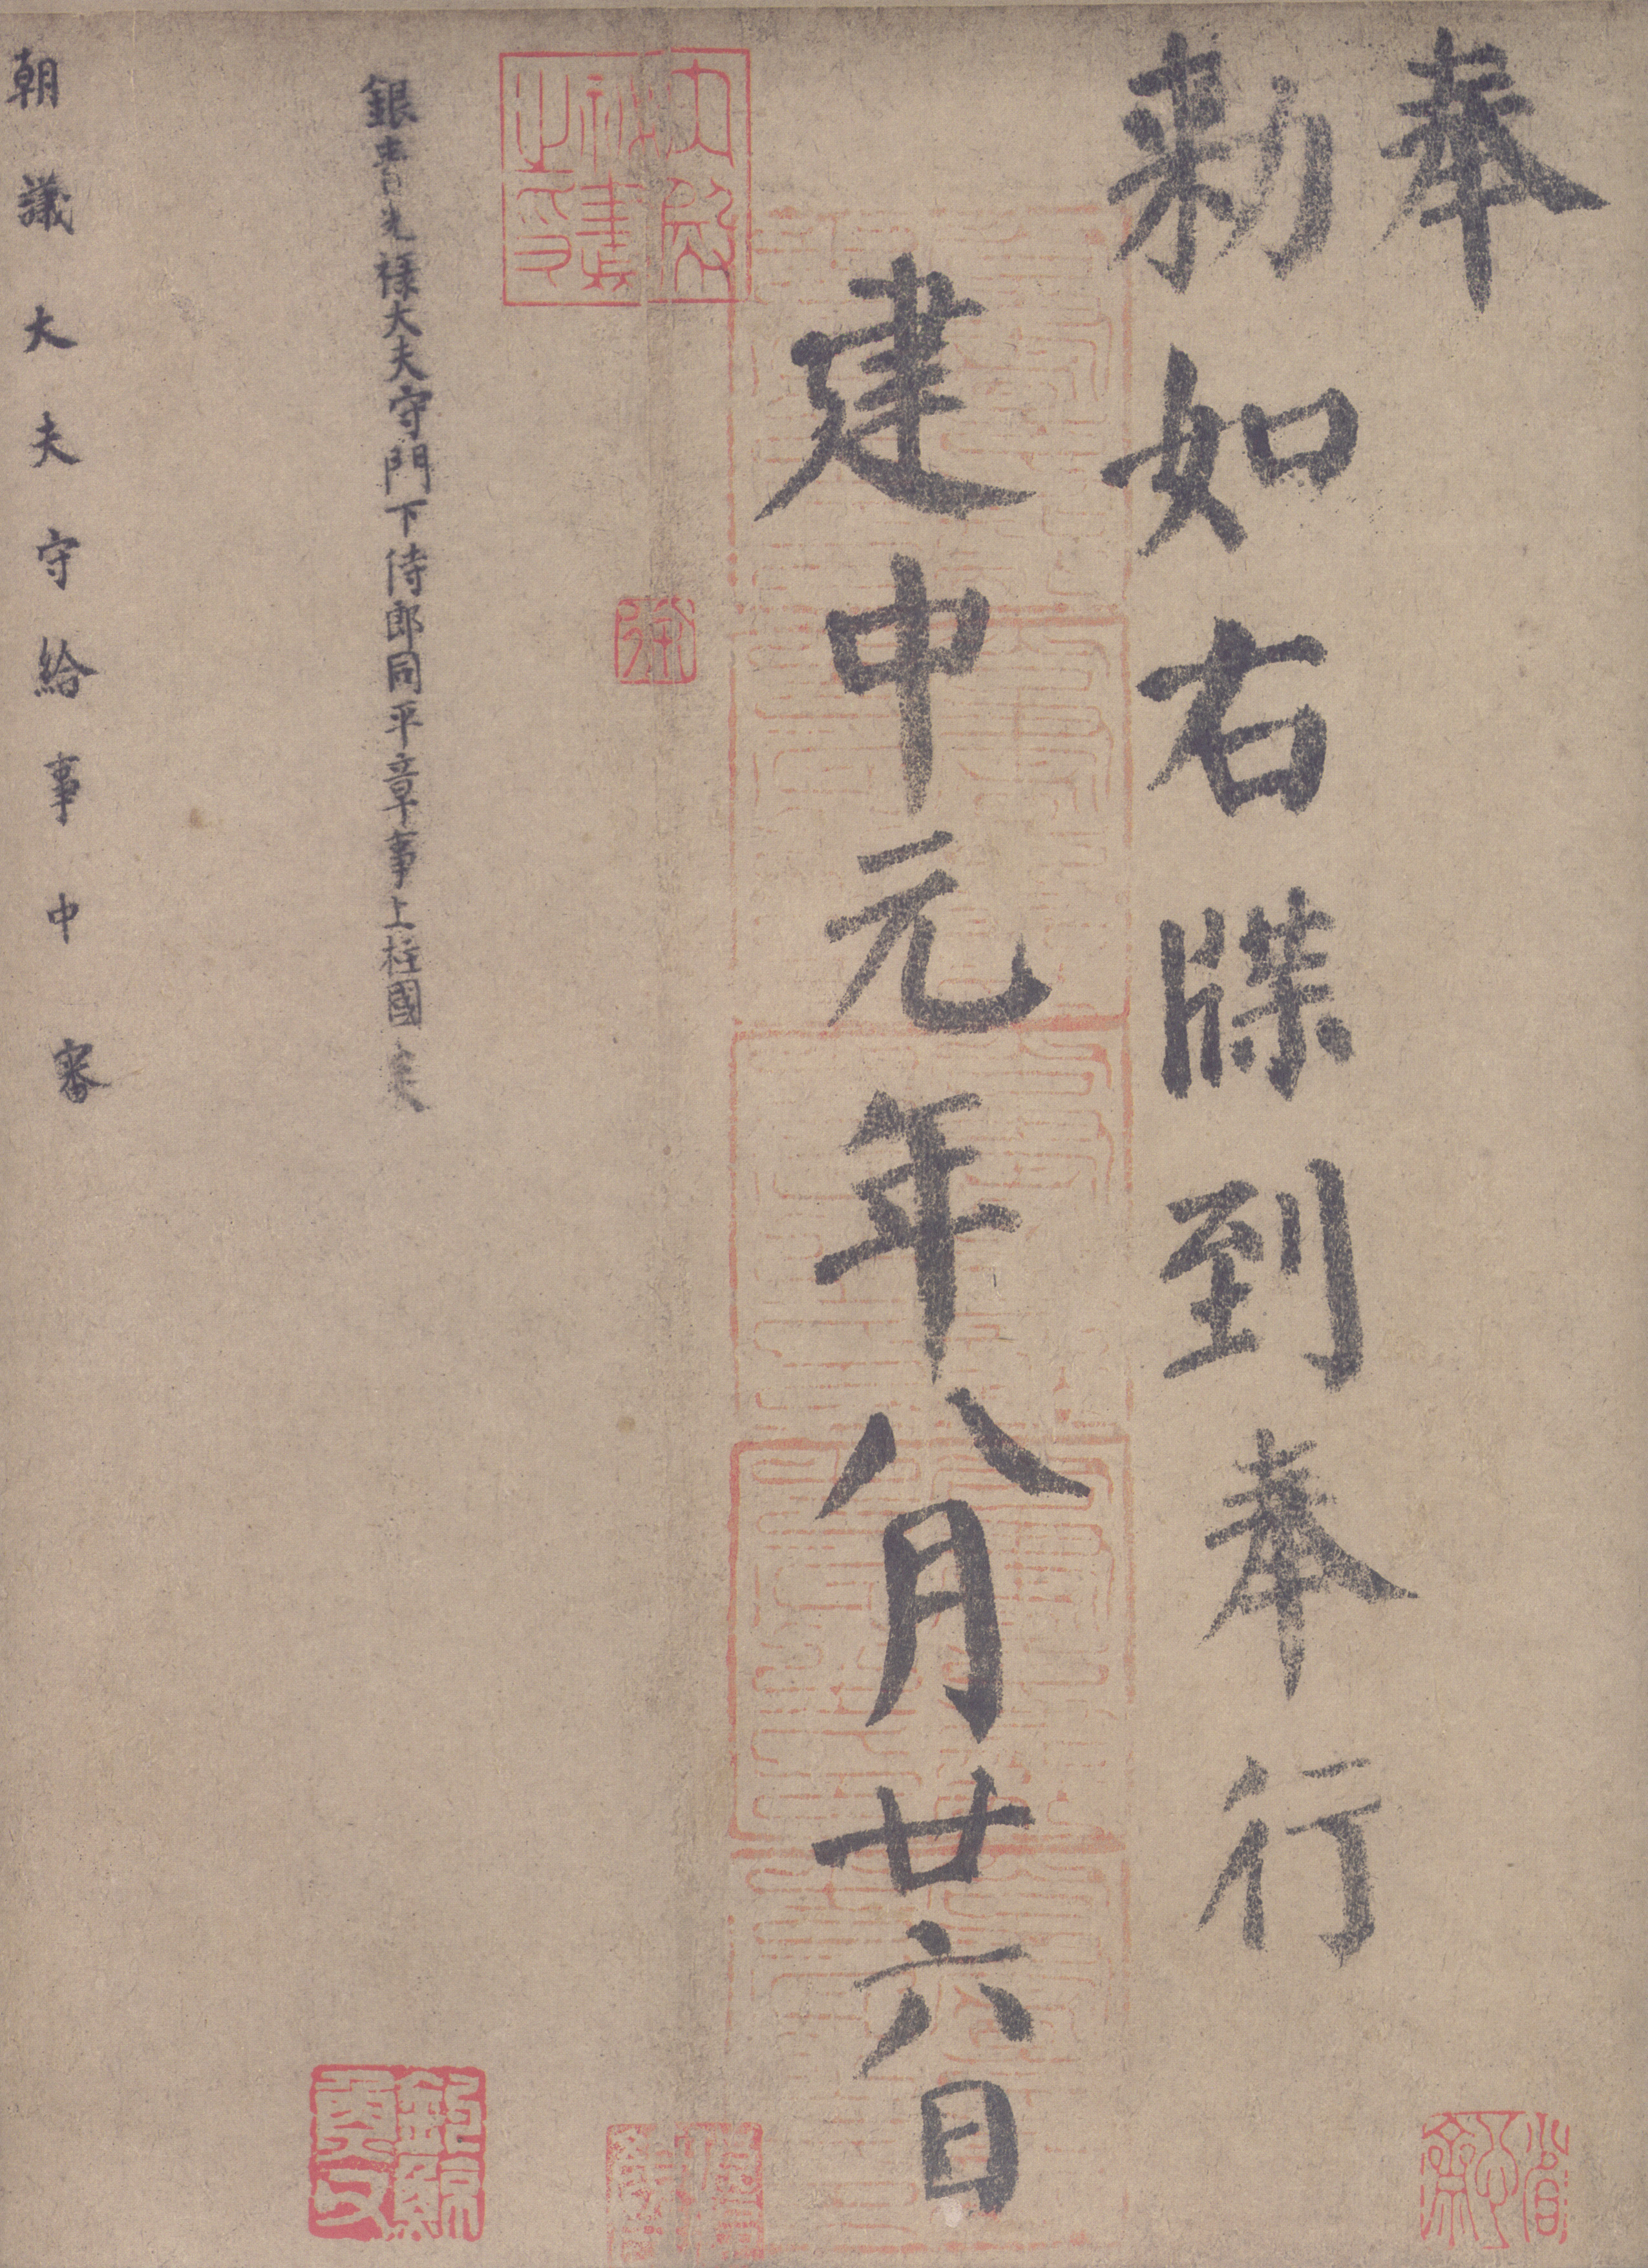 奉
勑如右牒到奉行
建中元年八月廿六日
內殿秘書之印
銀青光祿大夫守門下侍郎同平章事上柱國炎
朝議大夫守給事中審